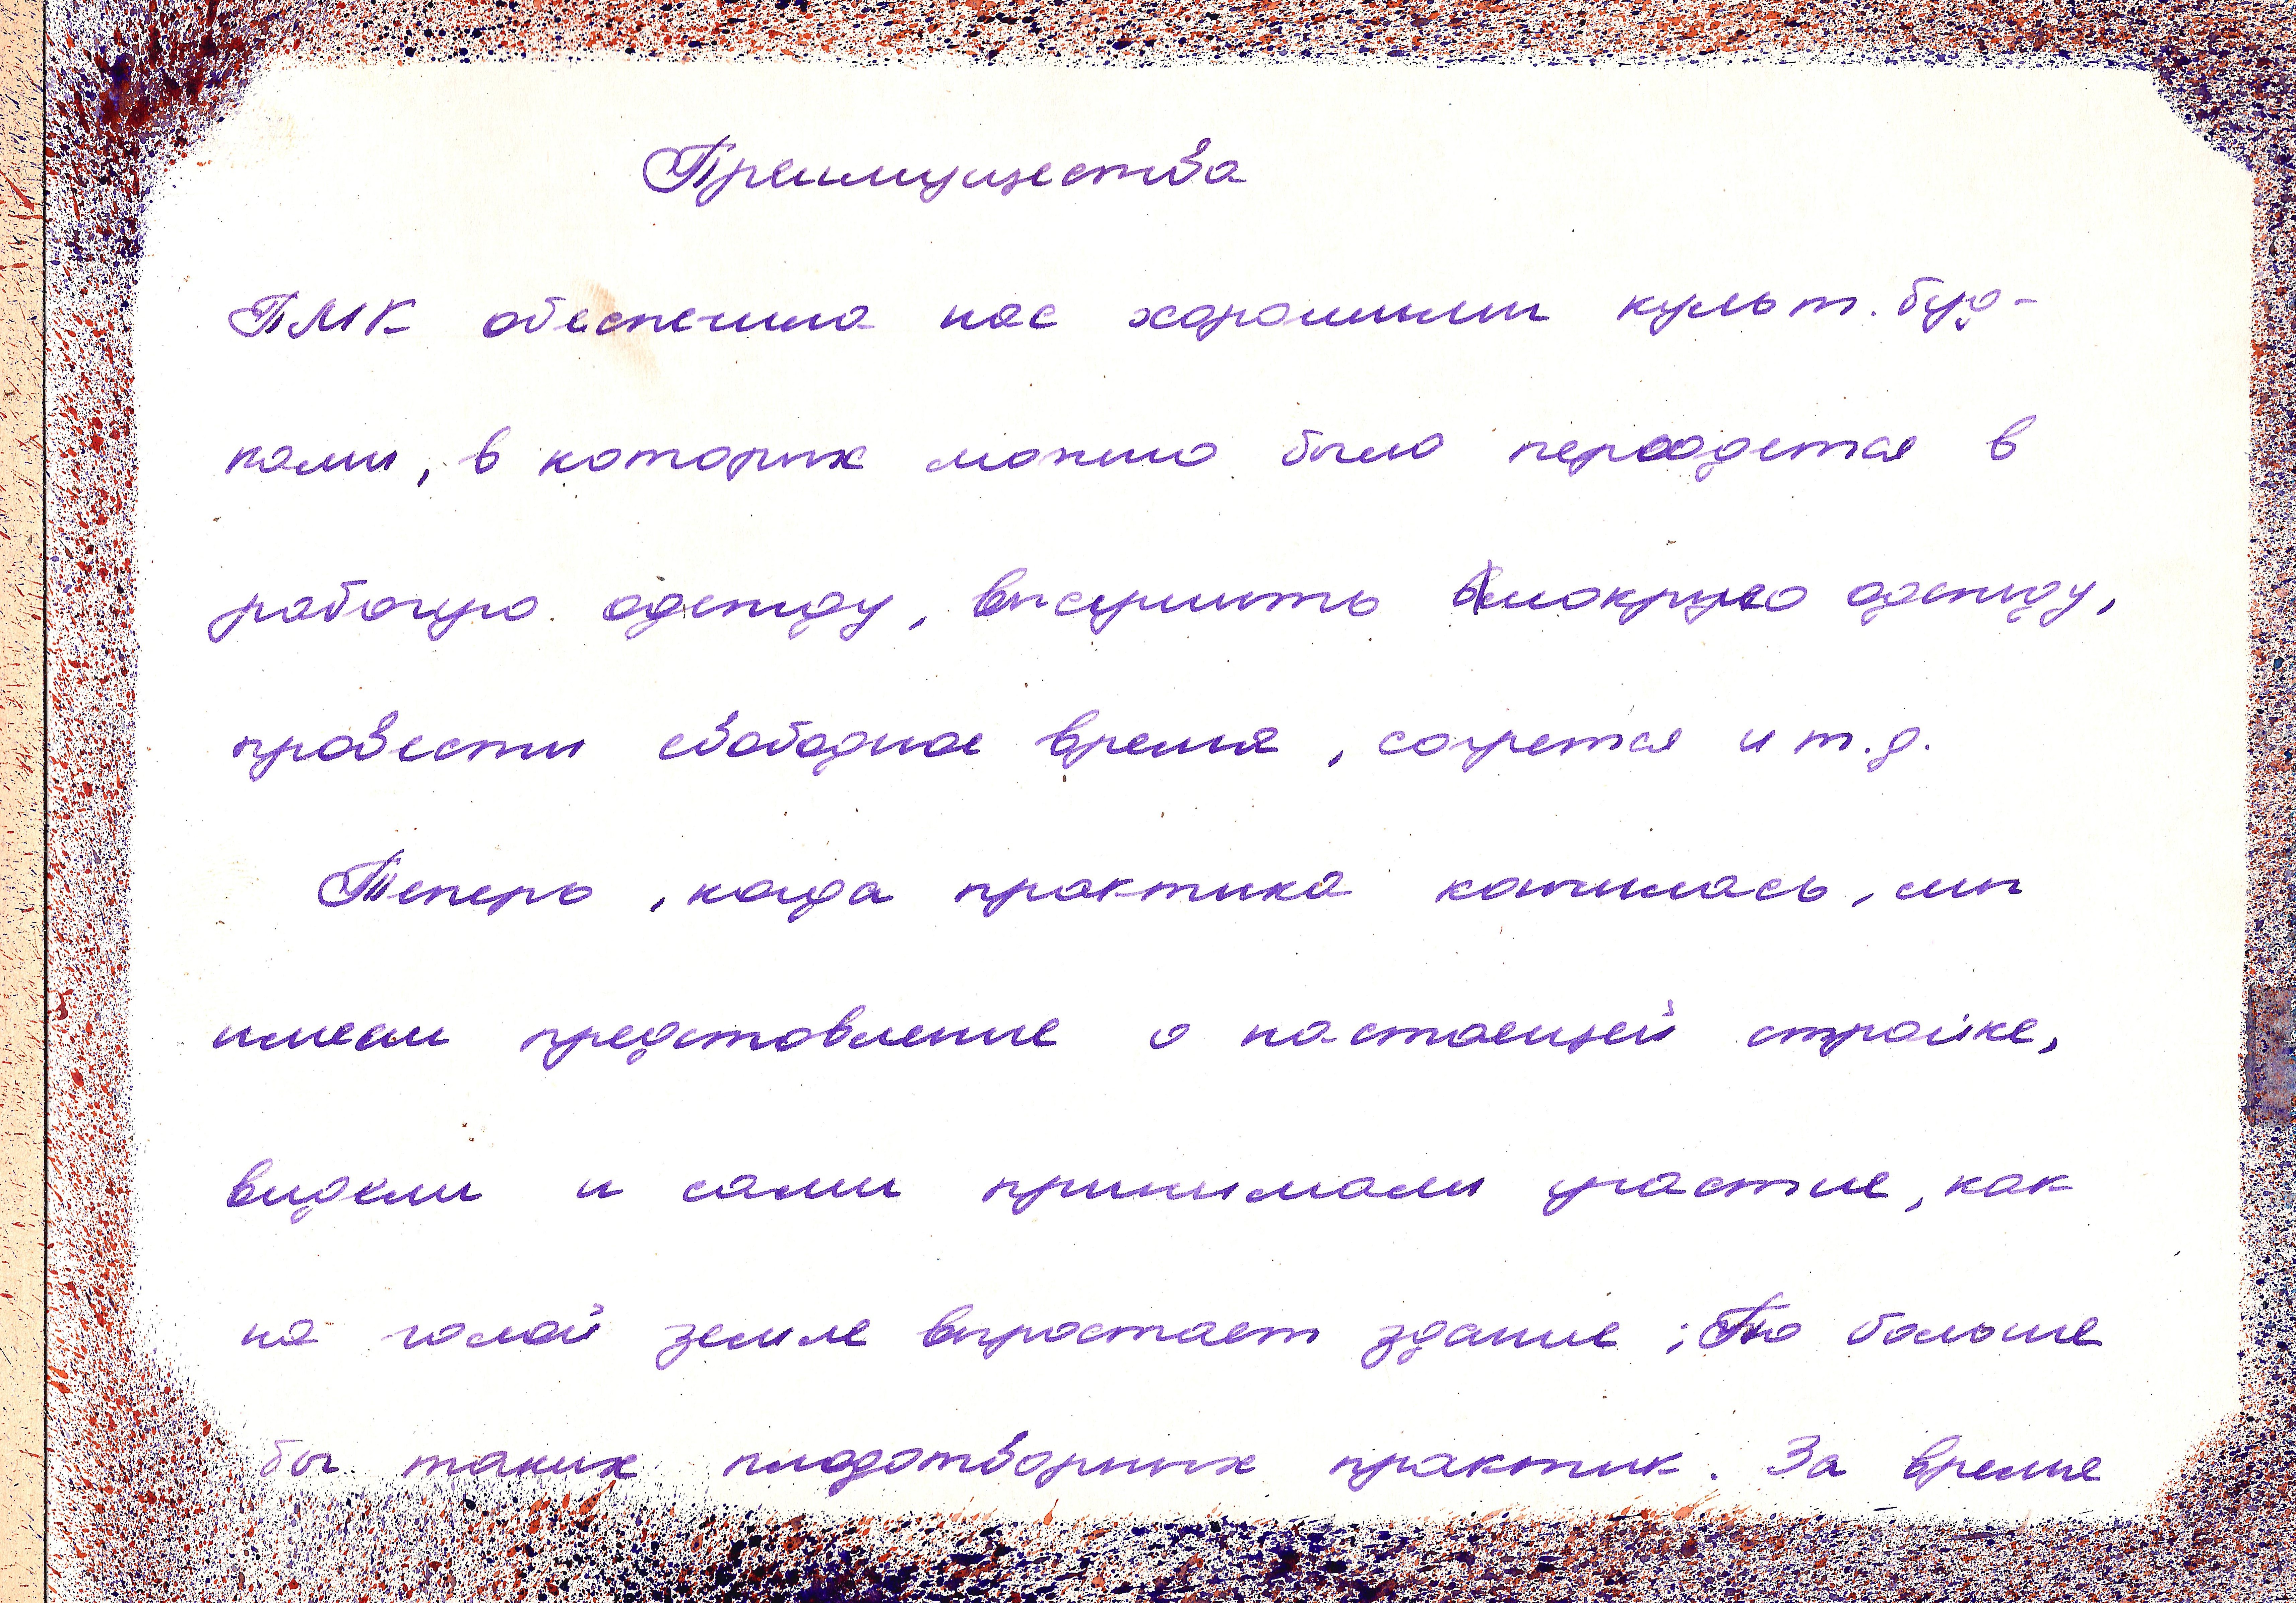 Преимущества
ПМК обеспечила нас хорошими культ. буд-
ками, в которых можно было переодется в
рабочую одежду, высушить мокрую одежду,
провести свободное время, согрется и т.д.
Теперь, когда практика кончилась, мы
имеем представление о настоещей стройке,
видели и сами принимали участие, как
на голой земле выростает здание;
больше
бы таких плодотворных практик. За время